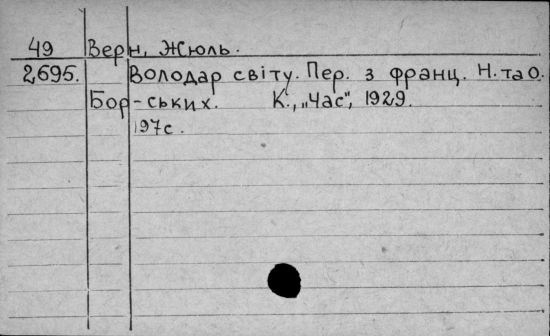 49 Верн, Жюль.
2695. Володар світу. Пер. з франц. Н. та О.
Бор-ських. К., „Час", 1929.
197с.